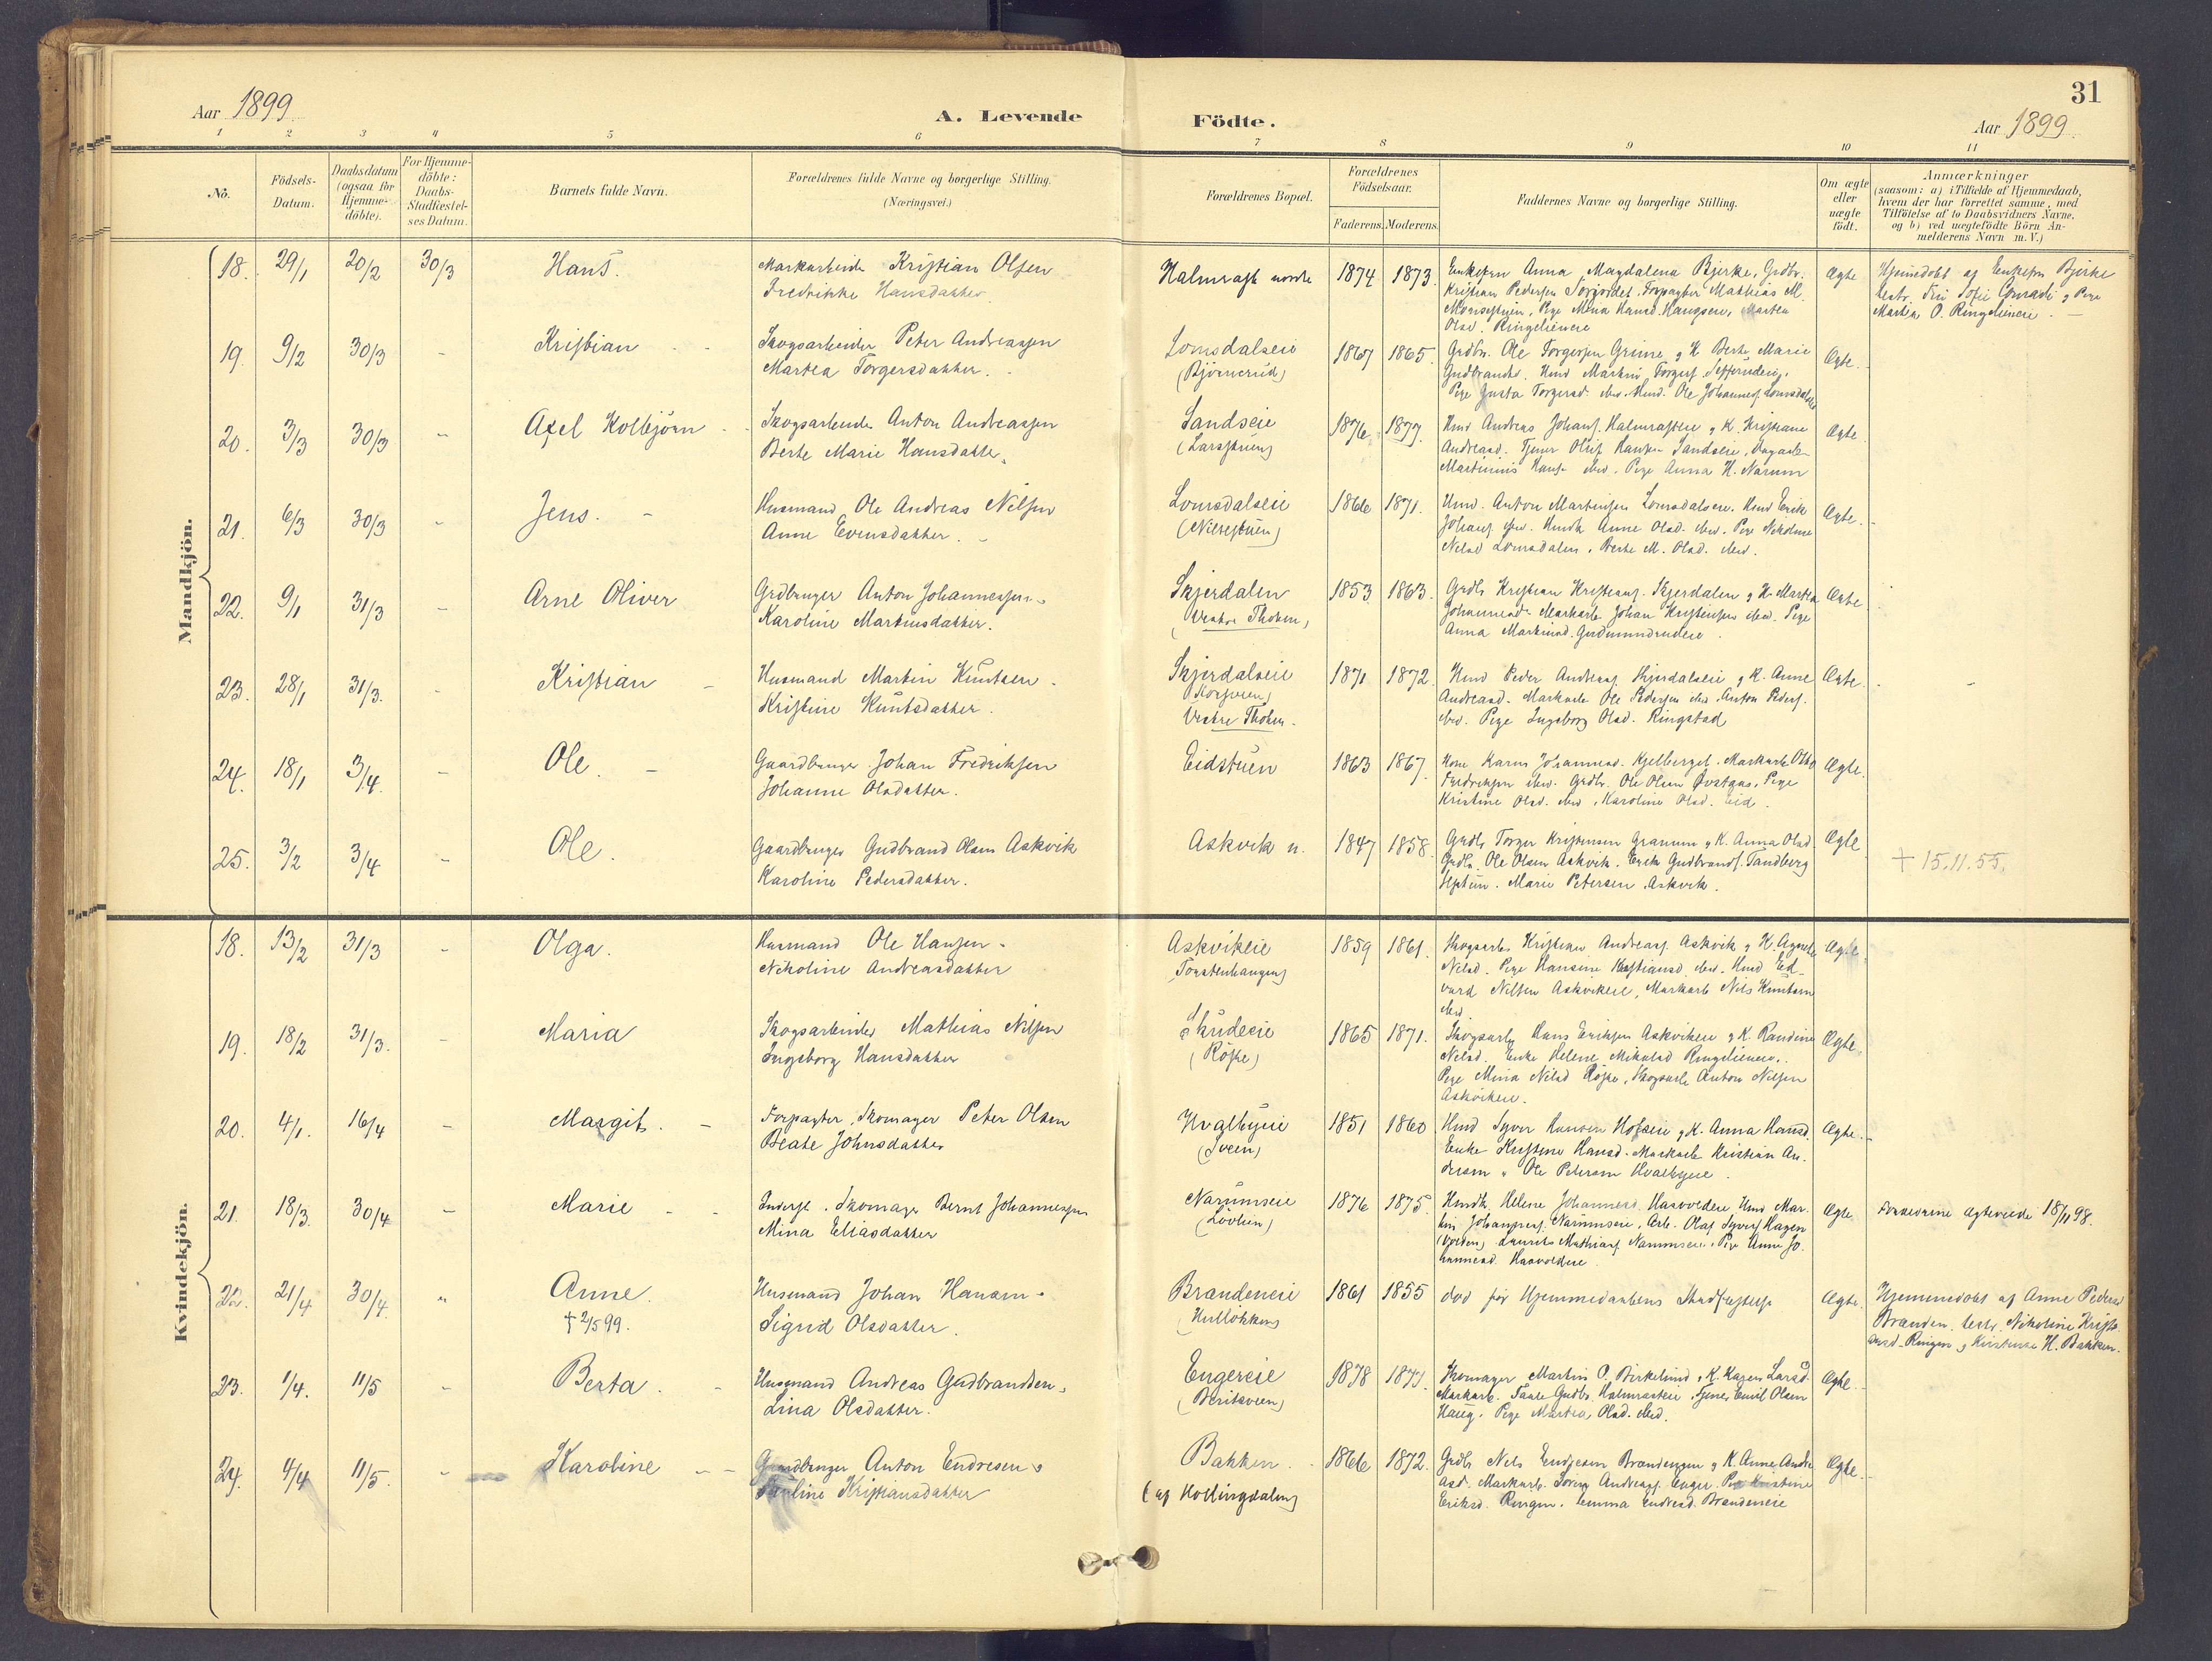 31
Aar 1899
A. Levende Födte.
Aar 1899.
1 2 3 4 5 6 7 8 9 10 11
No.
Födsels-Datum.
Daabsdatum (ogsaa for Hjemme-döbte).
For Hjemme-döbte: Daabs-Stadfæstel-ses Datum.
Barnets fulde Navn.
Forældrenes fulde Navne og borgerlige Stilling.
(Næringsvei.)
Forældrenes Bopæl.
Forældrenes Födselsaar.
Faderens. Moderens.
Faddernes Navne og borgerlige Stilling.
Om ægte eller uægte födt.
Anmærkninger
(saasom: a) i Tilfælde af Hjemmedaab,
hvem der har forrettet samme, med
Tilföielse af to Daabsvidners Navne,
og b) ved uægtefödte Börn An-
melderens Navn m. V.)
Mandkjön.
18. 29/1 20/2 30/3 Hans.
Markarbeider Kristian Olsen
Fredrikke Hansdatter
Halmrast nordre 1874 1873.
Enkefru Anna Magdalena Bjerke, Grdbr.
Kristian Pedersen, Forpagter Mathias M.
Pige Mina Hansd. Haugseie, Martea
Olsd. Ringelieneie
Ægte
Hjemmedöbt af Enkefru Bjerke
testr. Frk Sofie Conradi og Pige
Martea O. Ringelieneie. —
19. 9/2 30/3 - Kristian
Skogsarbeider Peter Andreassen
Martea Torgersdatter.
Lomsdalseie
(Björnerud)
1867 1865.
Grdbr. Ole Torgersen Grime, og K. Berte Marie
Gudbrandsd. Hmd Martin Torgers.
Pige Gusta Torgersd. ibid. Hmd. Ole Johannes. Lomsdalseie
Ægte.
20. 3/3 30/3 - Axel Kolbjörn
Skogsarbeider Anton Andreassen
Berte Marie Hansdatter.
Sandseie
(Larsstuen)
1876 1877.
Hmd Andreas Johans. Halmrasteie og K. Kristiane
Andreasd. Tjener Oluf Hansen Sandseie,
Martinius Hans. ibid. Pige Anna H. Narum
Ægte
21. 6/3 30/3 - Jens. -
Husmand Ole Andreas Nilsen
Anne Evensdatter. -
Lomsdalseie
(Nilsestuen)
1866 1871.
Hmd. Anton Martinsen Lomsdalseie. Hmd Erik
Johans. ibid. Hmdk Anne Olsd. ibid. Pige Nikoline
Nilsd Lomsdalen, Berte M. Olsd. ibid.
Ægte.
22. 9/1 31/3 - Arne Oliver
Grdbruger Anton Johannessen
Karoline Martinsdatter.
Skjerdalen
(Vestre Thoten)
1853 1863.
Grdbr Kristian Kristians. Skjerdalen og K. Martea
Johannesd. Markarb. Johan Kristensen ibid. Pige
Anna Martinsd. Gudmundrudeie.
Ægte
23. 28/1 31/3. - Kristian -
Husmand Martin Knutsen.
Kristine Knutsdatter.
Skjerdalseie
Vestre Thoten.
1871 1872.
Hmd Peder Andreas. Skjerdalseie og K. Anne
Andreasd. Markarb Ole Pedersen ibid. Anton Peders.
ibid. Pige Ingeborg Olsd. Ringstad
Ægte.
24. 18/1 3/4. - Ole. -
Gaardbruger Johan Fredriksen
Johanne Olsdatter.
Eidstuen 1863 1867.
Kone Karen Johannesd. Kjelberget. Markarb Otto
Fredriksen ibid. Grdbr. Ole Olsen, Pige
Kristine Olsd. ibid, Karoline Olsd. Eid.
Ægte.
25. 3/2 3/4 - Ole.
Gaardbruger Gudbrand Olsen Askvik
Karoline Pedersdatter.
Askvik n. 1847 1858.
Grdbr. Torger Kristensen Granum og K. Anna Olsd.
Grdbr. Ole Olsen Askvik. Enke Gudbrands. Sandberg
Marie Petersen Askvik.
Ægte
+ 15.11.55.
Kvindekjön.
18. 13/2 31/3 - Olga.
Husmand Ole Hansen
Nikoline Andreasdatter
Askvikeie
Torstenhaugen)
1859 1861.
Skogsarb. Kristian Andreas. Askvik og K. Agnethe
Nilsd. Pige Hansine Kristiansd. ibid. Hmd Ed-
vard Nilsen Askvikeie, Markarb Nils Knutsen
ibid
Ægte
19. 18/2 31/3. - Maria
Skogsarbeider Mathias Nilsen
Ingeborg Hansdatter
(Röste)
1865 1871.
Skogsarb Hans Eriksen Askvikeie og K. Randine
Nilsd. Enke Helene Mikalsd Ringelieneie.
Pige Mina Nilsd Röste, Skogsarb Anton Nilsen
Askvikeie.
Ægte
20. 4/1. 16/4 - Margit. -
Forpagter, Skomager Peter Olsen
Beate Johnsdatter
Hvalbyeie
(Sveen)
1851 1860
Hmd Syver Hansen Hofseie og K. Anna Hansd.
Enke Kristine Hansd. Markarb Kristian An-
dersen, Ole Petersen Hvalbyeie.
Ægte.
21. 18/3. 30/4 - Marie
Inderst. Skomager Bernt Johannessen
Mina Eliasdatter
Narumseie
(Lövlien)
1876 1875.
Hmdk Helene Johannesd. Haavoldeie, Hmd Mar-
tin Johannes. Narumseie, Arb. Olaf Syvers Hagen
Laurits Mathias. Narumseie, Pige Anne Jo-
hannesd. Haavoldeie
Ægte
Forældrene ægteviede 18/11 98.
22. 21/4 30/4. " Anne.
+ 2/5 99.
Husmand Johan Hansen
Sigrid Olsdatter.
Brandeneie
1861 1855
död för Hjemmedaabens Stadfæstelse
Ægte.
Hjemmedöbt af Anne Pedersd
Branden, testr. Nikoline Kristi-
ansd. Ringen og H. Bakken.
23. 1/4. 11/5 - Berta. -
Husmand Andreas Gudbrandsen
Lina Olsdatter.
Engereie
(Beritsveen)
1878 1871.
Skomager Martin O. Birkelund, K. Karen Larsd.
Markarb. Gudbr. Halmrasteie, Tjener Emil Olsen
Haug. Pige Martea Olsd. ibid.
Ægte
24. 4/4 11/5. - Karoline
Gaardbruger Anton Endresen
Pauline Kristiansdatter
Bakken.
(af Hollingdalen)
1866 1872.
Grdbr Nels Endresen Brandengen og K. Anne Andre-
asd. Markarb. Sören Andreas. Enger. Pige Kristine
Eriksd. Ringen. Emma Endresd. Brandeneie
Ægte.